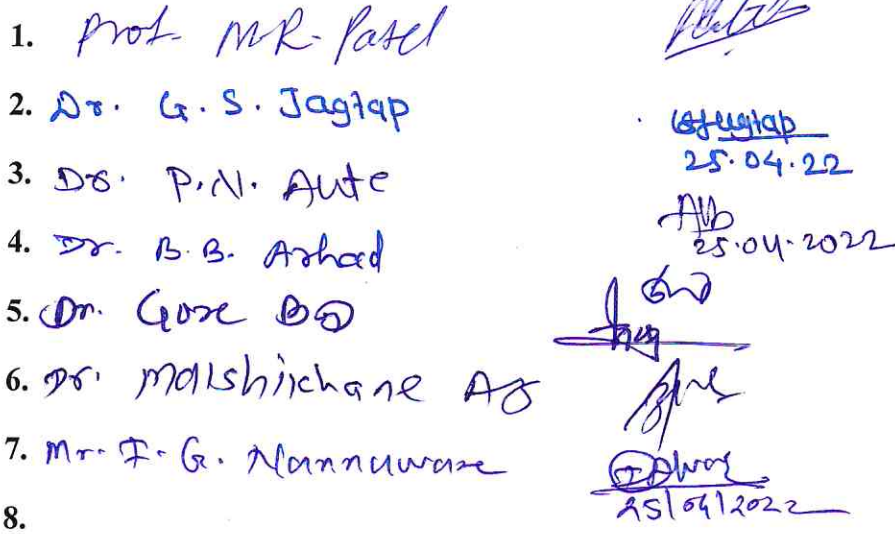 1. Prof. M.R. Patel
2. Dr. G. S. Jagtap
25.04.22
3. Dr. P.N. Aute
25.04.2022
4. Dr. B. B. Arhad
5. Dr. Gore
6. Dr. Malshikhane
7. Mr. I. G. Nannaware
25/04/2022
8.